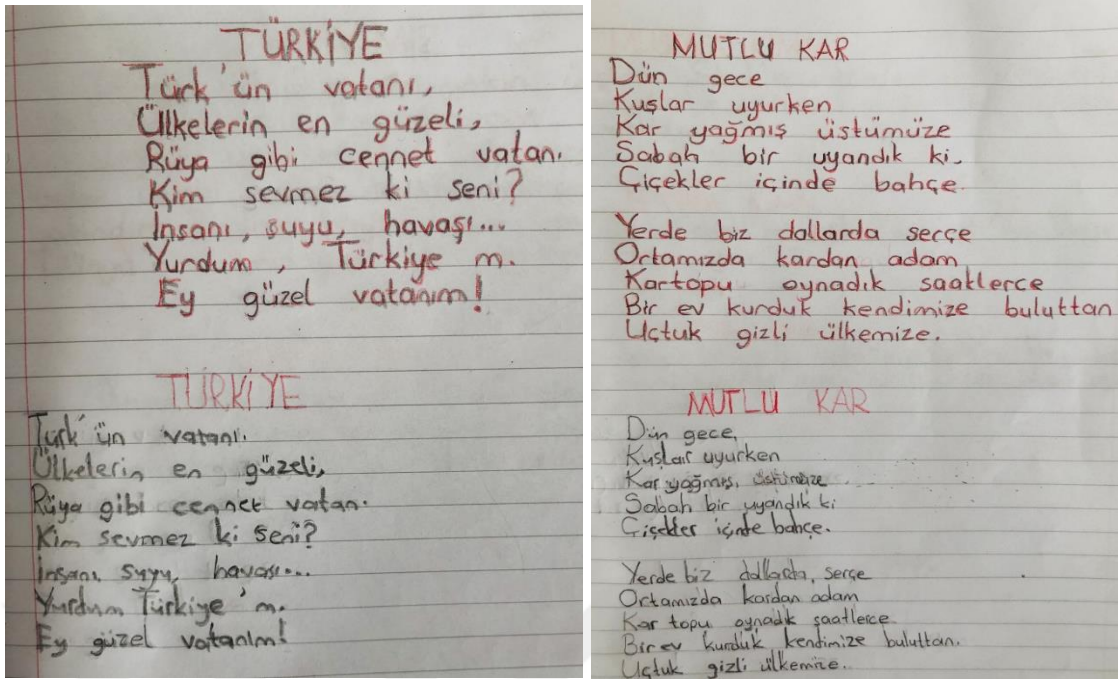 TÜRKİYE
Türk'ün vatanı,
Ülkelerin en güzeli,
Rüya gibi cennet vatan.
Kim sevmez ki seni?
İnsanı, suyu, havası...
Yurdum, Türkiye m.
Ey güzel vatanım!
TÜRKİYE
Türk'ün vatanı.
Ülkelerin en güzeli,
Rüya gibi cennet vatan.
Kim sevmez ki seni?
İnsanı, suyu, havası...
Yurdum Türkiye'm.
Ey güzel vatanım!
MUTLU KAR
Dün gece
Kuşlar uyurken
Kar yağmış üstümüze
Sabah bir uyandık ki.
Çiçekler içinde bahçe.
Yerde biz dallarda serçe
Ortamızda kardan adam
Kartopu oynadık saatlerce
Bir ev kurduk kendimize buluttan
Uçtuk gizli ülkemize.
MUTLU KAR
Dün gece,
Kuşlar uyurken
Kar yağmış, üstümüze
Sabah bir uyandık ki
Çiçekler içinde bahçe.
Yerde biz dallarda, serçe
Ortamızda kardan adam
Kar topu oynadık saatlerce
Bir ev kurduk kendimize buluttan.
Uçtuk gizli ülkemize.